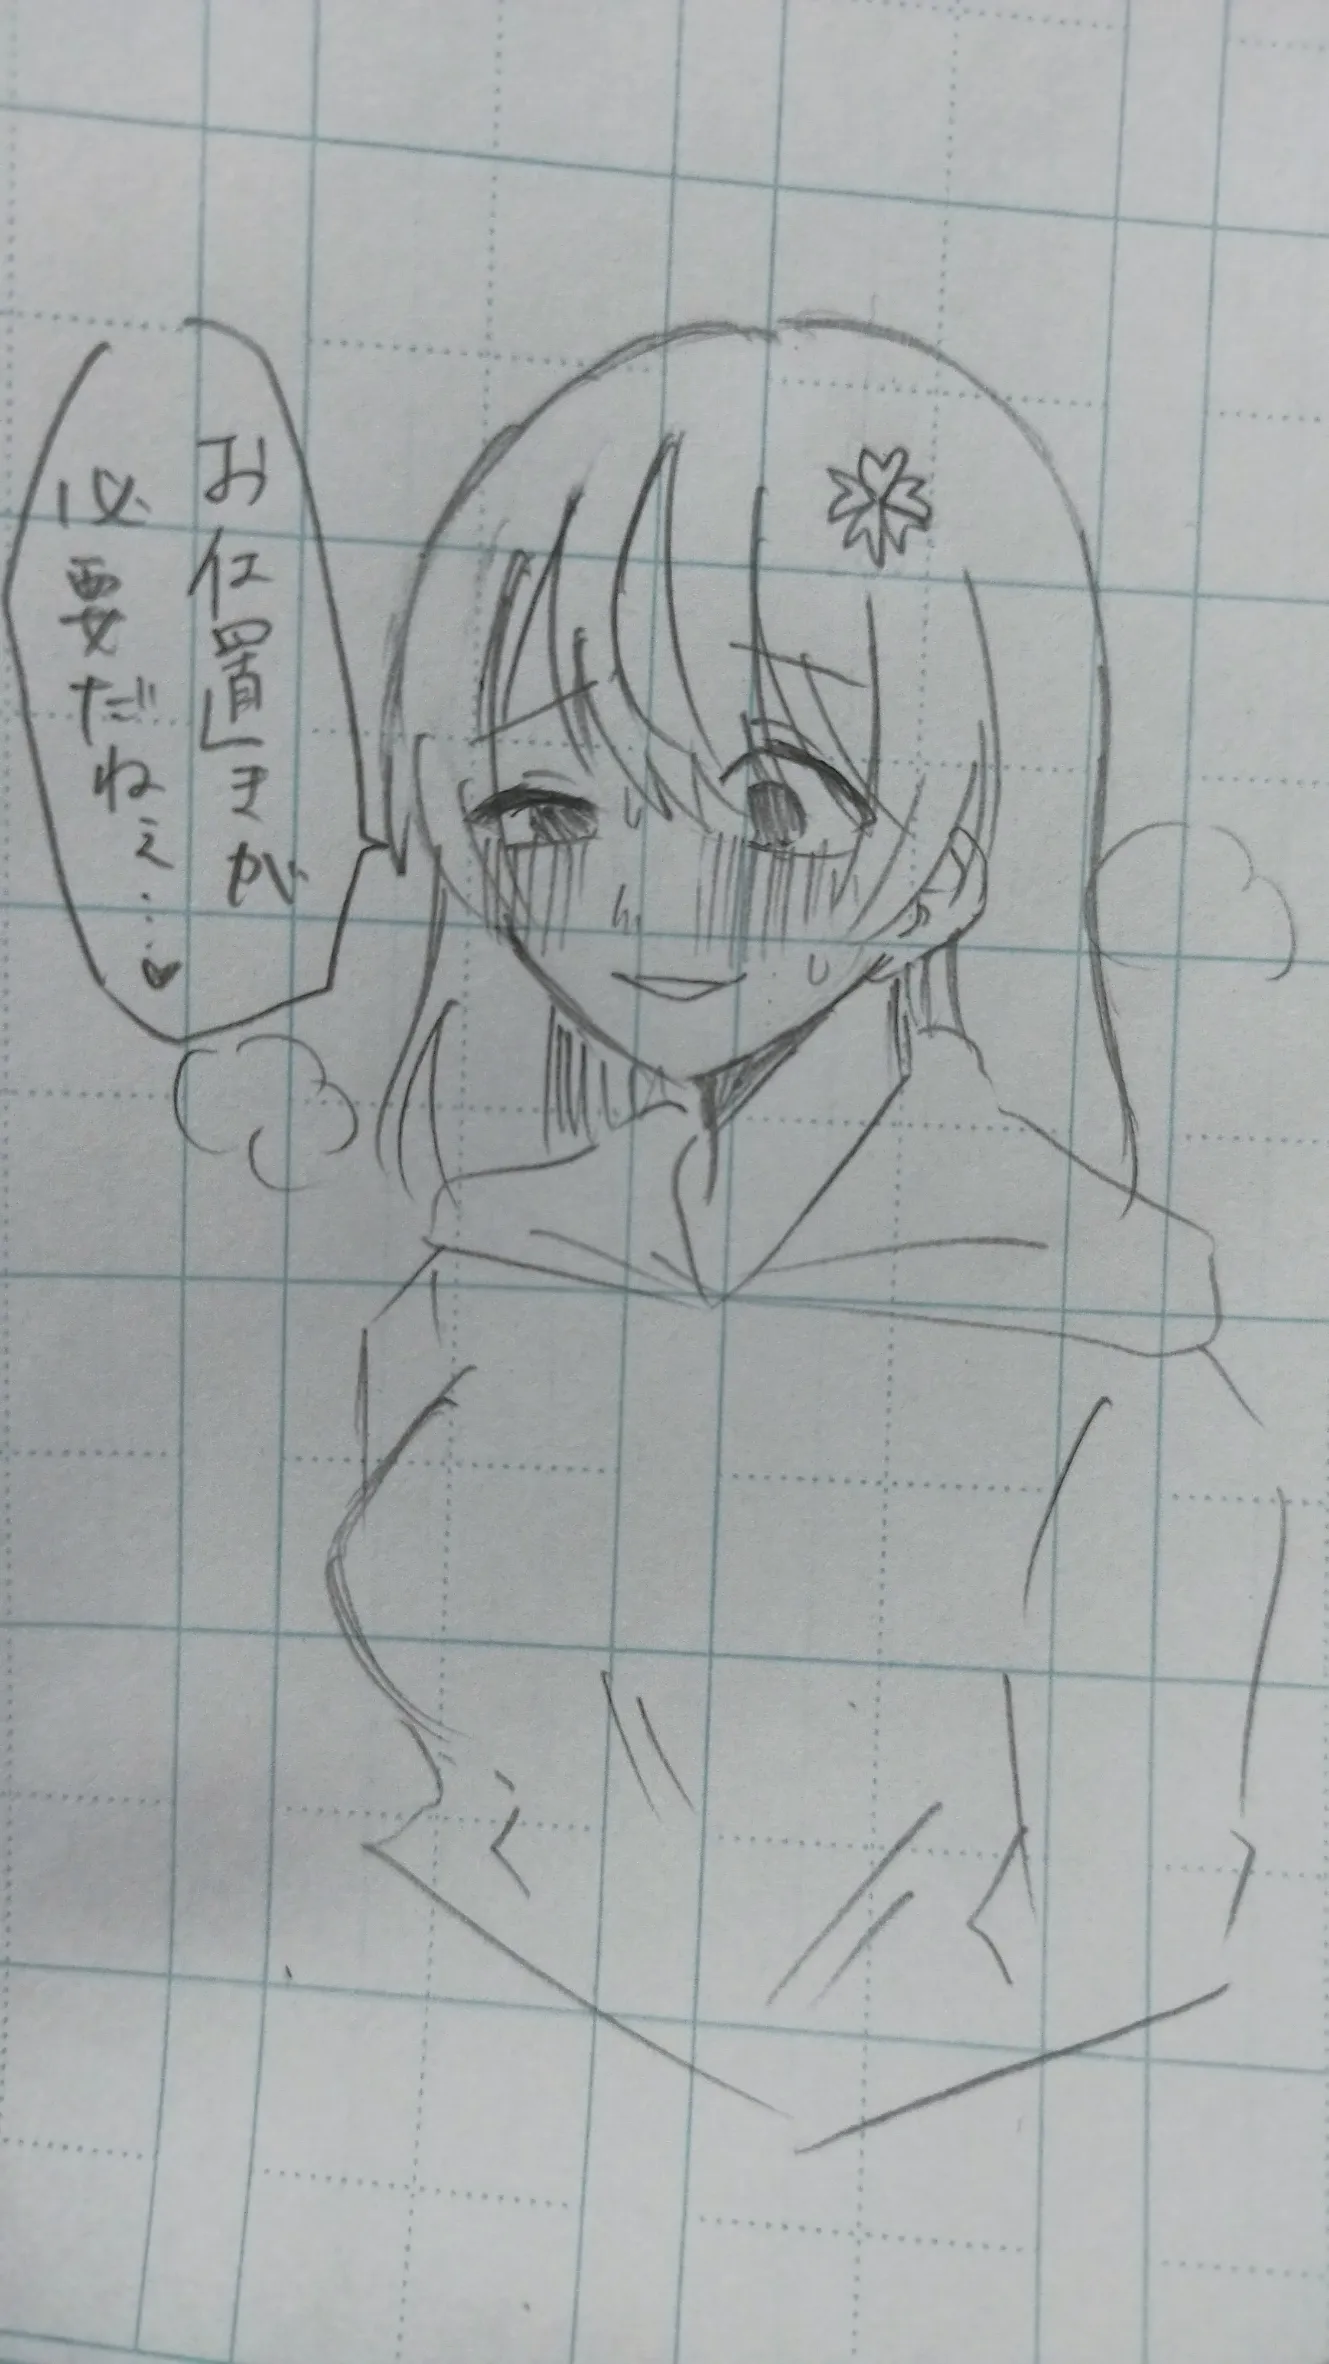 お仕置きが
必要だねぇ…♥